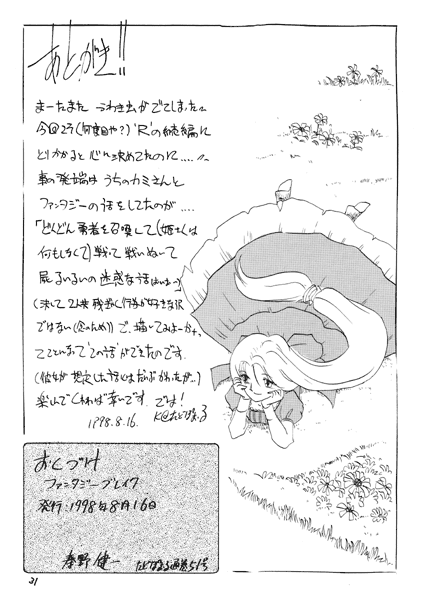 あとがき!!
まーたまた うわき虫がでてしまった
今回こそ(何度目や?)“R”の続編に
とりかかると心に決めてたのに.....
事の発端は うちのカミさんと
ファンタジーの話をしてたのが....
「どんどん 勇者を召喚して(姫さんは
何もしなくて)戦って 戦いぬいて
屍るいるいの迷惑な話
(決して 2人共 残虐 行為が好きな訳
ではない(念のため)) で、描いてみよーかなっ
てことになって“この話”ができたのです.
(彼女が想定した話とはだいぶかわったが...)
楽しんでくれれば幸いです. では!
1998.8.16.
おくづけ
ファンタジーブレイク
発行:1998年8月16日
春野 健一
21